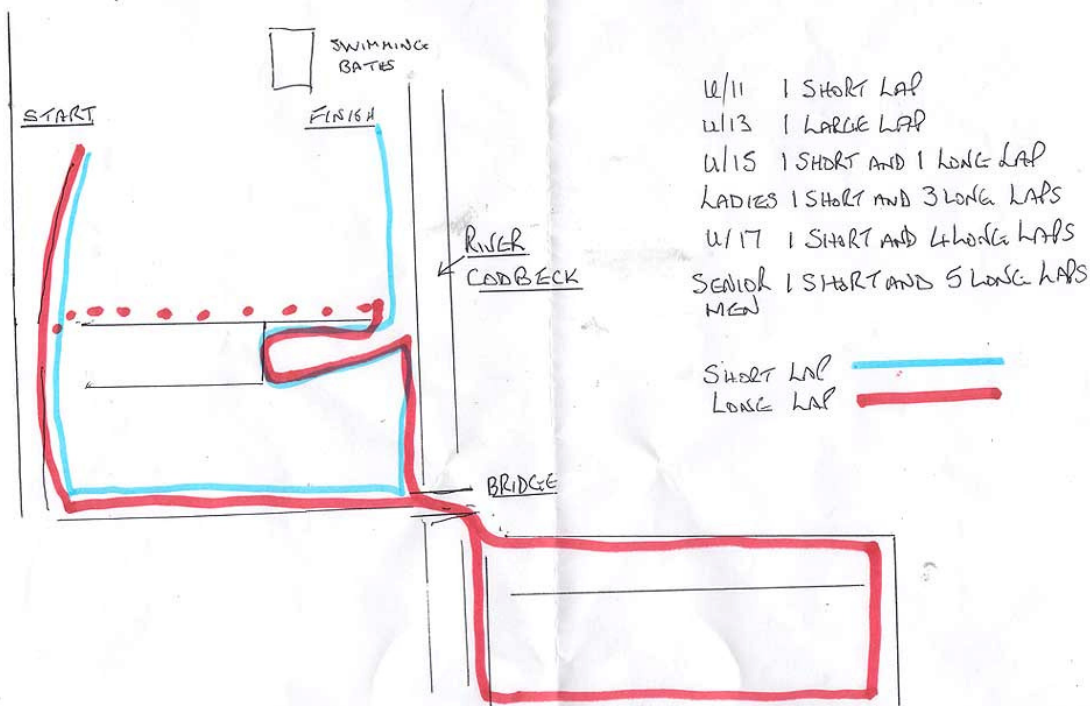 SWIMMING
BATHS
START
FINISH
RIVER
CODBECK
BRIDGE
U/11 1 SHORT LAP
U/13 1 LARGE LAP
U/15 1 SHORT AND 1 LONG LAP
LADIES 1 SHORT AND 3 LONG LAPS
U/17 1 SHORT AND 4 LONG LAPS
SENIOR 1 SHORT AND 5 LONG LAPS
MEN
SHORT LAP
LONG LAP